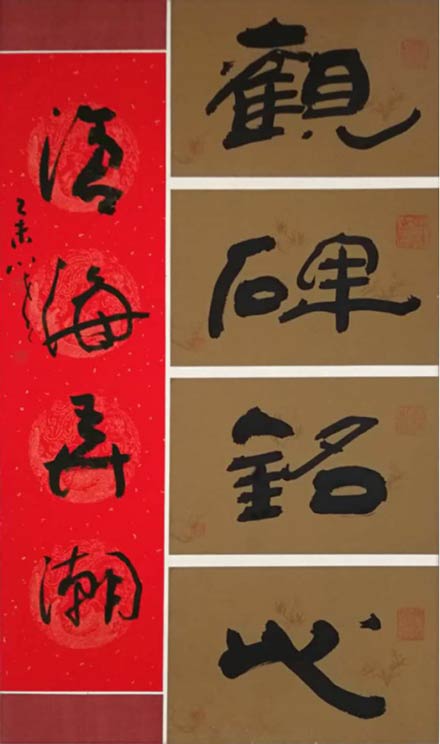 觀碑銘心
滄海弄潮
乙未